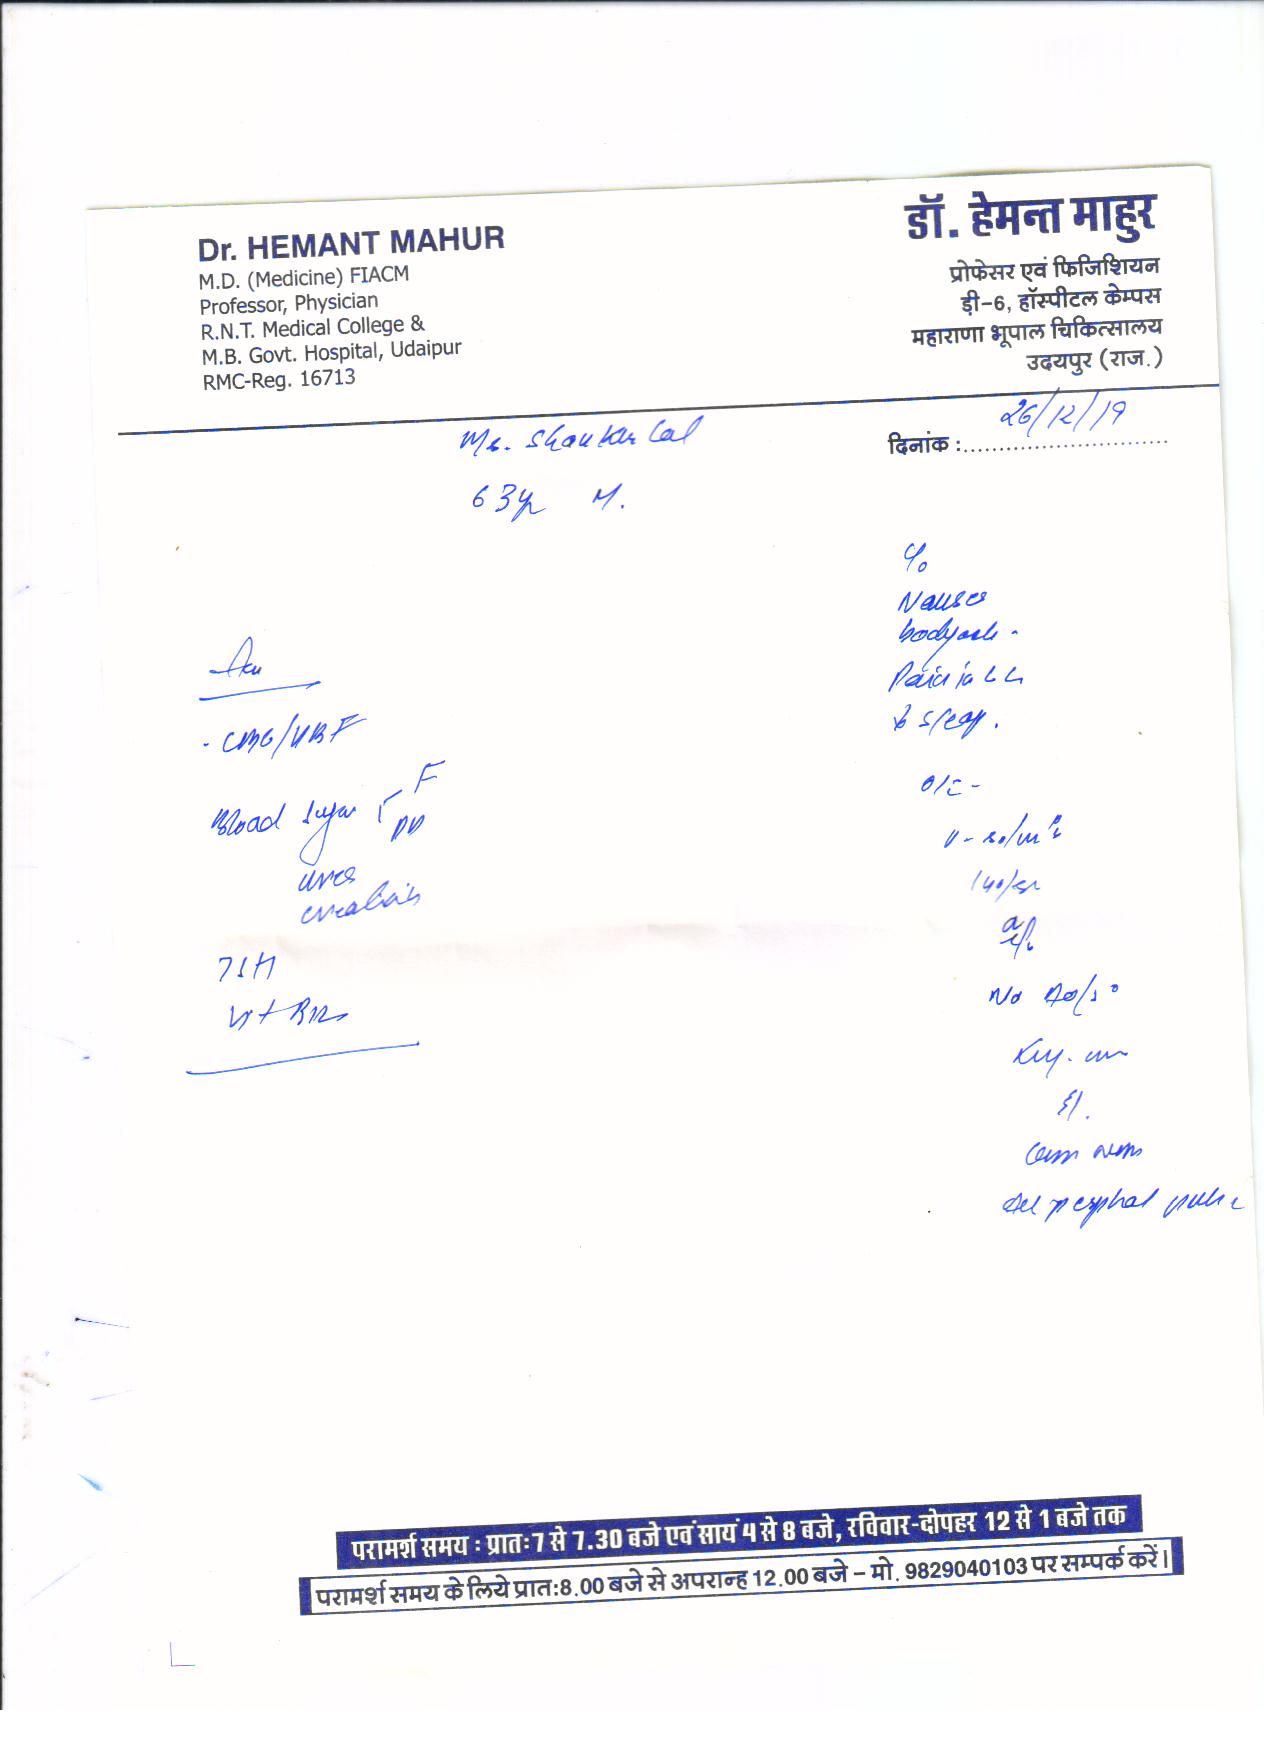 Dr. HEMANT MAHUR
M.D. (Medicine) FIACM
Professor, Physician
R.N.T. Medical College &
M.B. Govt. Hospital, Udaipur
RMC-Reg. 16713
डॉ. हेमन्त माहुर
प्रोफेसर एवं फिजिशियन
ड़ी-6, हॉस्पीटल केम्पस
महाराणा भूपाल चिकित्सालय
उदयपुर (राज.)
दिनांक : 26/12/19
Mr. Shankar Lal
63yr M.
C/o
Nausea
bodyache
Pain in LL
sleep.
O/E -
140/
No
All peripheral pulse
Blood Sugar F
PP
urea
creatinin
TSH
Vit B12
परामर्श समय : प्रातः7 से 7.30 बजे एवं सायं 4 से 8 बजे, रविवार-दोपहर 12 से 1 बजे तक
परामर्श समय के लिये प्रात:8.00 बजे से अपरान्ह 12.00 बजे - मो. 9829040103 पर सम्पर्क करें।